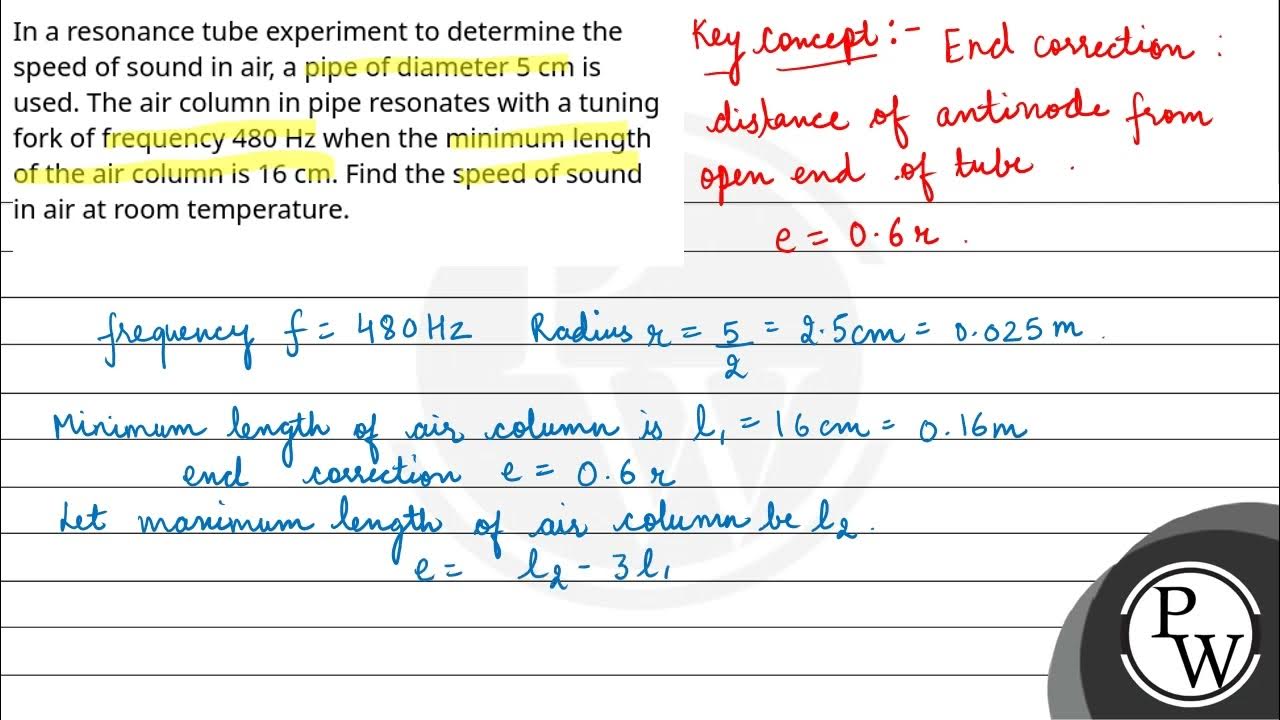 In a resonance tube experiment to determine the
speed of sound in air, a pipe of diameter 5 cm is
used. The air column in pipe resonates with a tuning
fork of frequency 480 Hz when the minimum length
of the air column is 16 cm. Find the speed of sound
in air at room temperature.
Key concept :- End correction :
distance of antinode from
open end of tube .
e = 0.6 r .
frequency f = 480 Hz Radius r = 5/2 = 2.5 cm = 0.025 m .
Minimum length of air column is l₁ = 16 cm = 0.16 m
end correction e = 0.6 r
Let maximum length of air column be l₂ .
e = l₂ - 3l₁
PW
PW